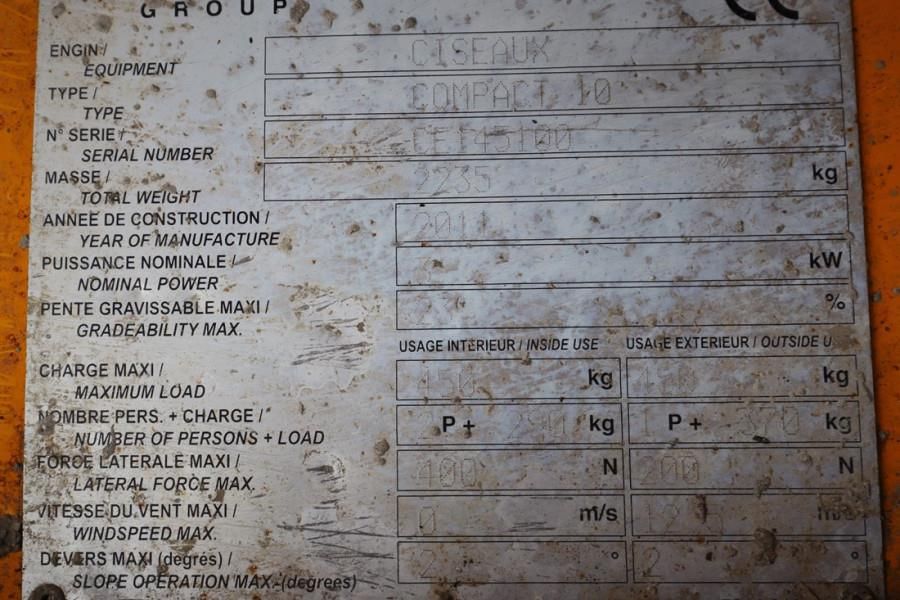 GROUP CE
ENGIN / CISEAUX
EQUIPMENT
TYPE / COMPACT 10
TYPE
N° SERIE /
SERIAL NUMBER
MASSE / 2235 kg
TOTAL WEIGHT
ANNEE DE CONSTRUCTION / 2011
YEAR OF MANUFACTURE
PUISSANCE NOMINALE / kW
NOMINAL POWER
PENTE GRAVISSABLE MAXI / %
GRADEABILITY MAX.
USAGE INTERIEUR / INSIDE USE USAGE EXTERIEUR / OUTSIDE
CHARGE MAXI / 450 kg kg
MAXIMUM LOAD
NOMBRE PERS. + CHARGE / 2 P + 290 kg 1 P + 370 kg
NUMBER OF PERSONS + LOAD
FORCE LATERALE MAXI / 400 N 200 N
LATERAL FORCE MAX.
VITESSE DU VENT MAXI / 0 m/s m/s
WINDSPEED MAX.
DEVERS MAXI (degrés) / 2 ° 2 °
SLOPE OPERATION MAX. (degrees)